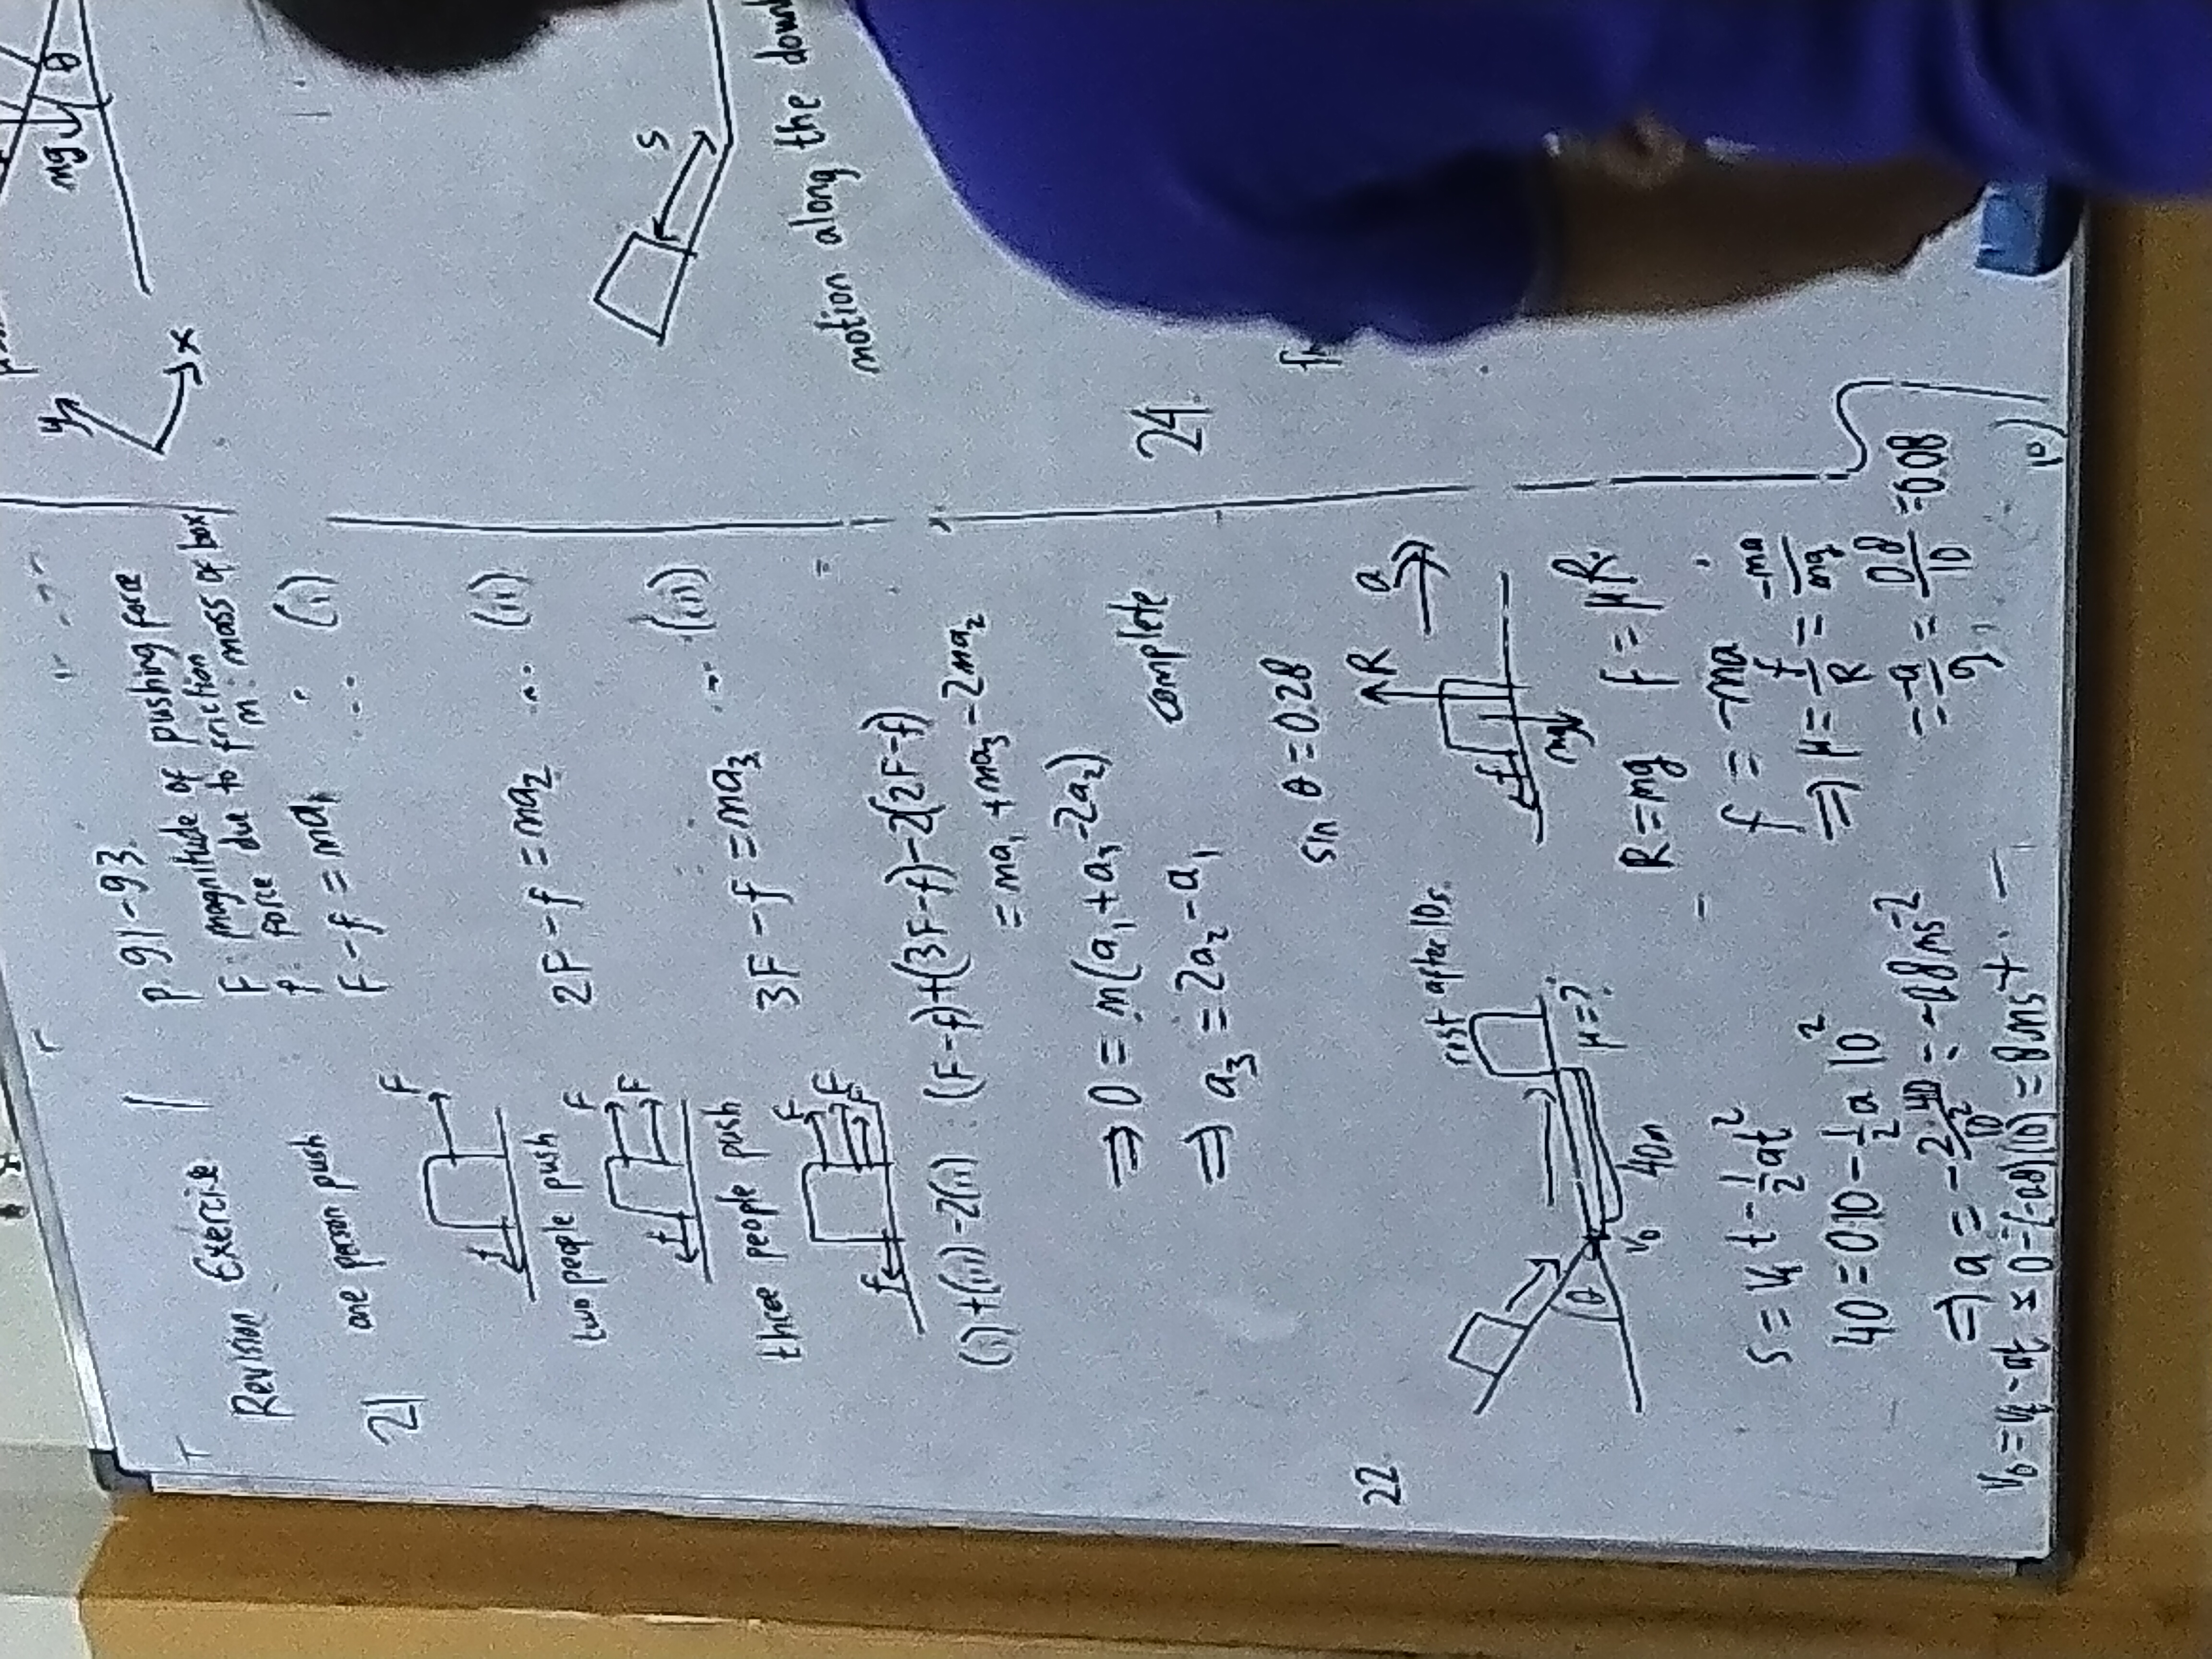 Revision Exercise 1 p. 91-93.
F: magnitude of pushing force
f: force due to friction
m: mass of box
21 one person push
F - f = ma₁ ... (i)
F
f
two people push
2F - f = ma₂ ... (ii)
F
F
f
three people push
3F - f = ma₃ ... (iii)
F
F
F
f
(i)+(iii)-2(ii) : (F-f)+(3F-f)-2(2F-f)
= ma₁ + ma₃ - 2ma₂
⇒ 0 = m(a₁+a₃-2a₂)
⇒ a₃ = 2a₂ - a₁ complete
22
sin θ = 0.28
rest after 10s.
θ
v₀
40m
μ=?
R
a
f
mg
R = mg f = μR
s = v_f t - ½at²
40 = 0·10 - ½a 10²
⇒ a = -2·40/10² = -0.8 ms⁻²
v₀ = v_f - at = 0-(-0.8)(10) = 8ms⁻¹
f = -ma
⇒ μ = f/R = -ma/mg
= -a/g = 0.8/10 = 0.08
y
x
mg
θ
s
motion along the
24.